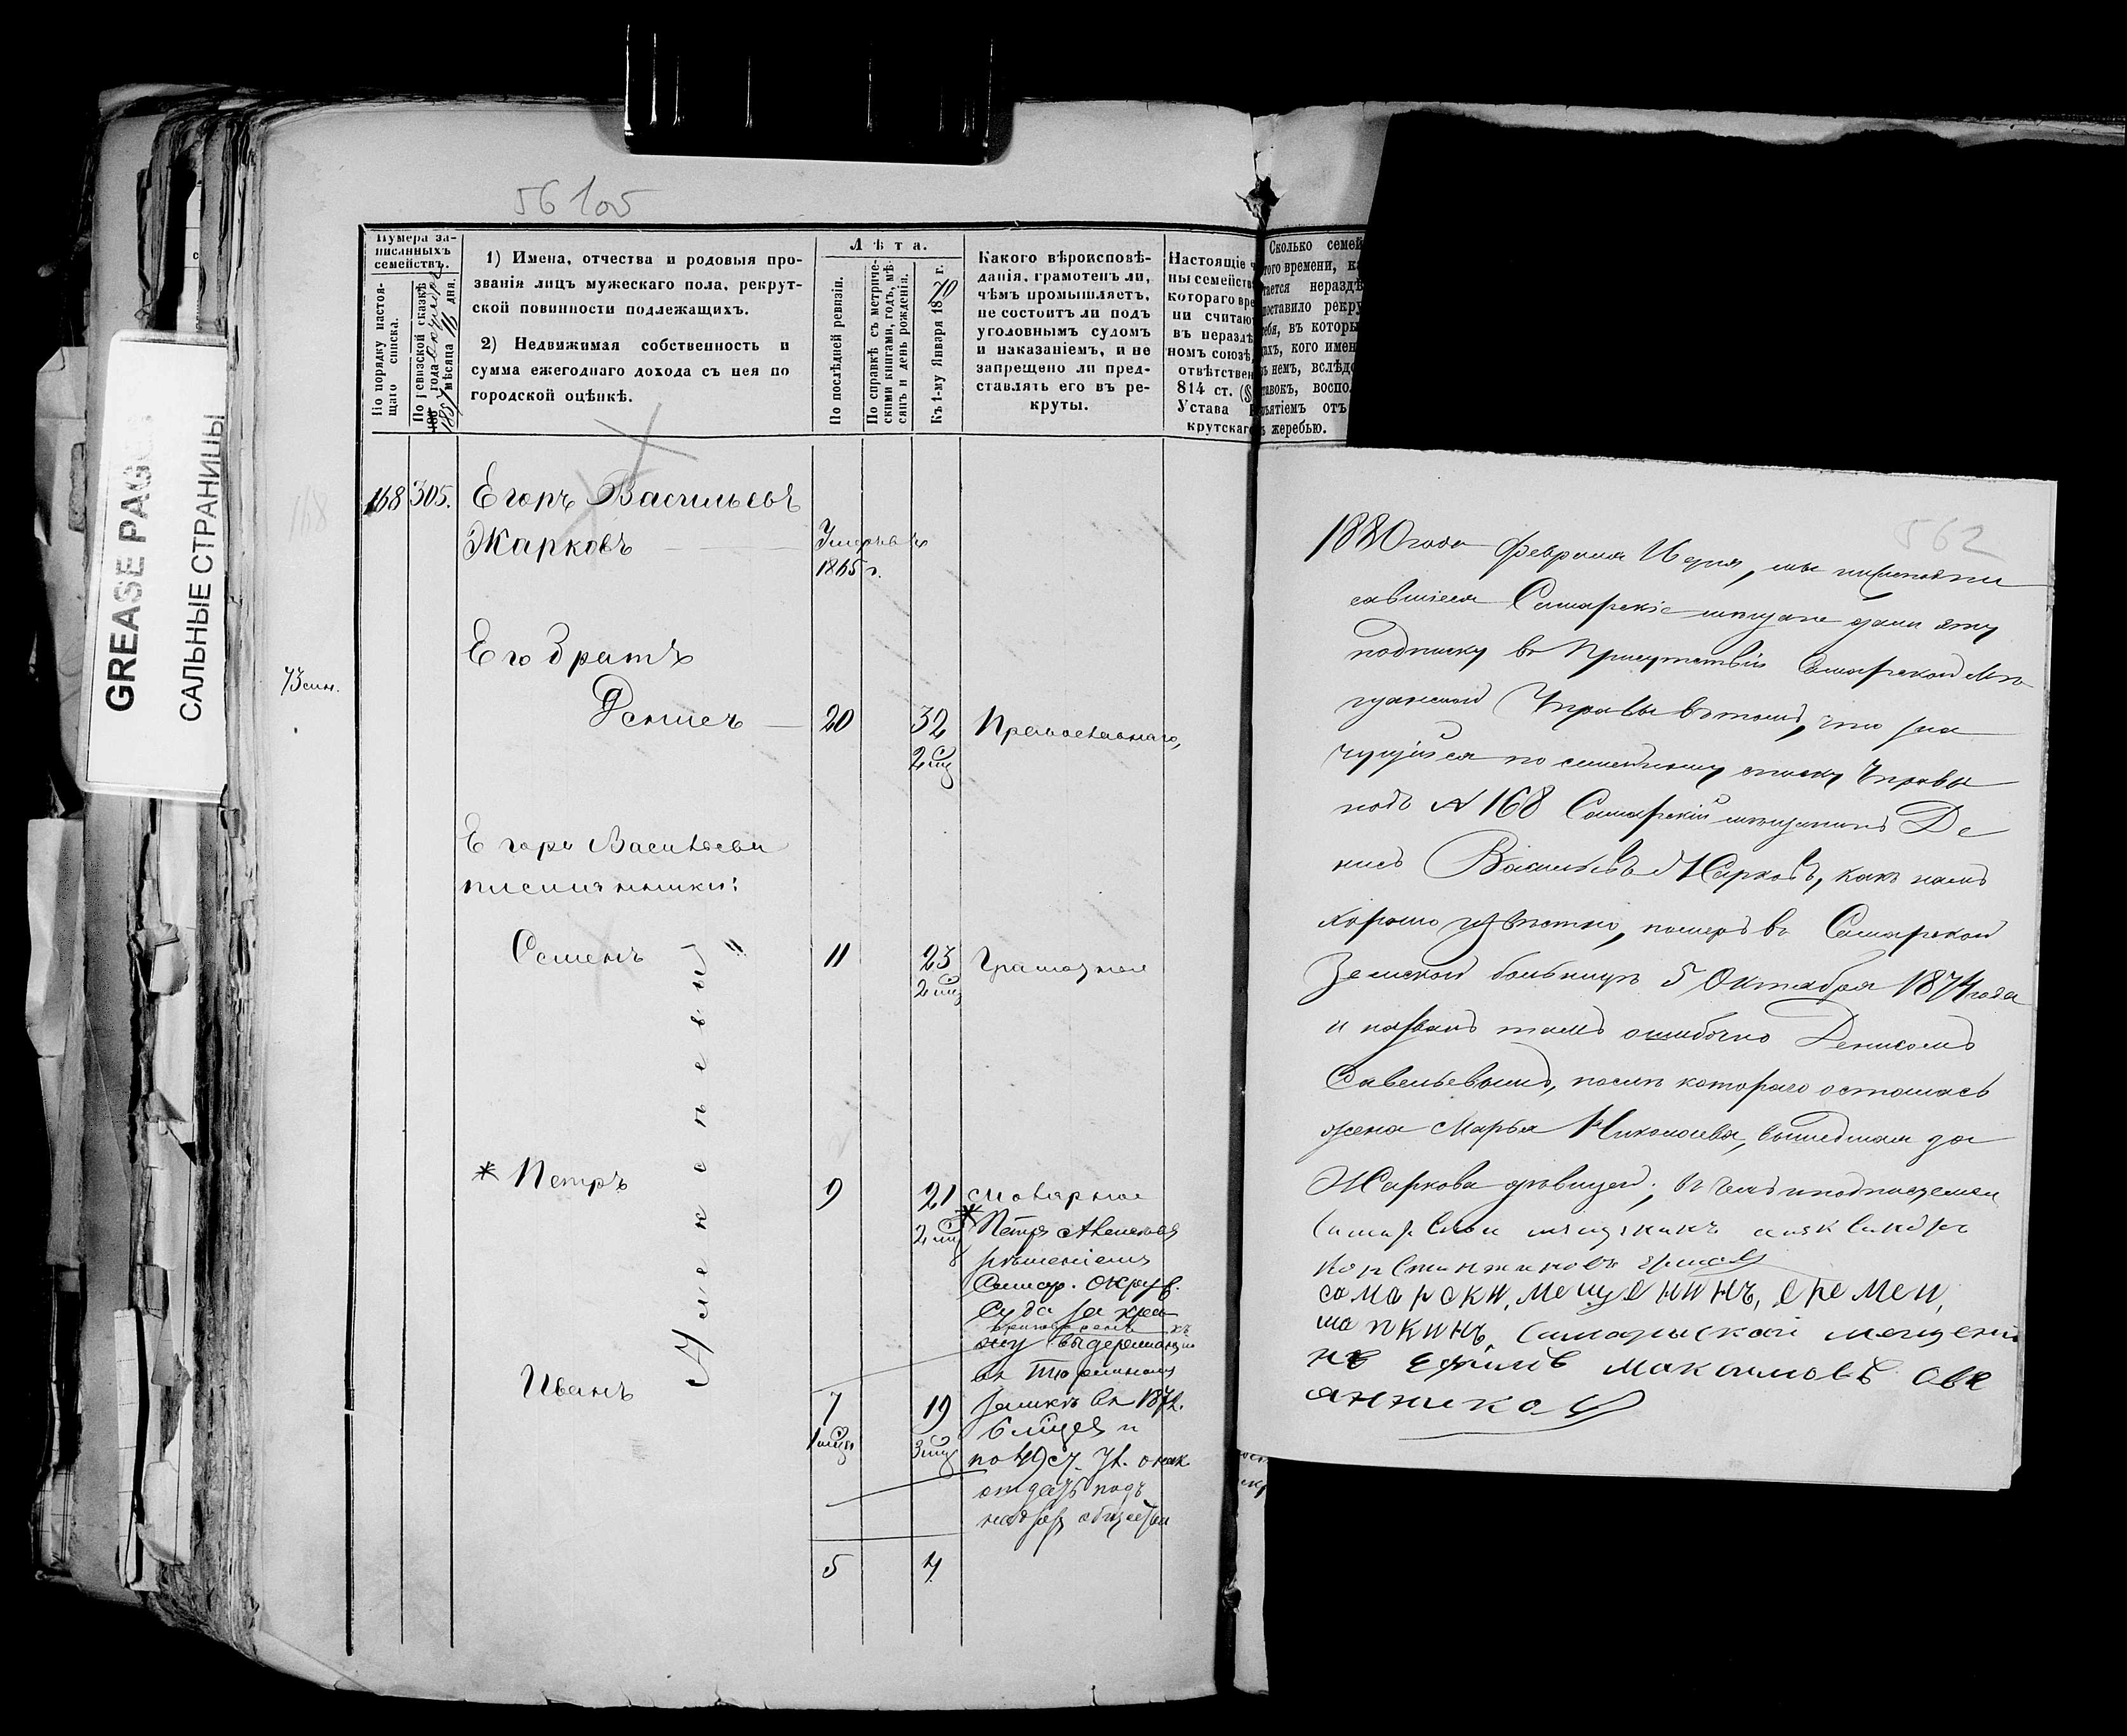 56 105
GREASE PAGES
САЛЬНЫЕ СТРАНИЦЫ
Нумера за-
писанныхъ
семействъ.
По порядку настоя-
щаго списка.
По ревизской сказкѣ
1857 года
мѣсяца дня.
1) Имена, отчества и родовыя про-
званія лицъ мужескаго пола, рекрут-
ской повинности подлежащихъ.
2) Недвижимая собственность и
сумма ежегоднаго дохода съ нея по
городской оцѣнкѣ.
Лѣта.
По послѣдней ревизіи.
По справкѣ съ метриче-
скими книгами, годъ, мѣ-
сяцъ и день рожденія.
Къ 1-му Января 1870 г.
Какого вѣроисповѣ-
данія, грамотенъ ли,
чѣмъ промышляетъ,
не состоитъ ли подъ
уголовнымъ судомъ
и наказаніемъ, и не
запрещено ли пред-
ставлять его въ ре-
круты.
Настоящіе
ны семейств
котораго вре
ни считаю
въ нераздѣ
номъ союзѣ,
отвѣтствен
814 ст. (§
Устава
крутскаго
Сколько семей
того времени, ка
тается нераздѣ
поставило рекру
себя, въ которы
дахъ, кого имен
въ немъ, вслѣдс
ставокъ, воспол
зъятіемъ отъ
жеребью.
168
168 305. Егоръ Васильевъ
Жарковъ Умеръ въ
1865 г.
Его братъ
Денисъ 20 32 Православнаго,
2 мц
Егора Васильева
племянники:
Семенъ 11 23 Грамотные
2 мц
Алексѣевы
* Петръ 9 21 столярное
2 мц * Петръ Алексѣевъ
рѣшеніемъ
Самар. Окруж.
Суда за кра
приговоренъ къ
жу выдержанъ
въ тюремномъ
Иванъ 7 19 замкѣ въ 1872.
1 мцъ 3 мц 6 мцевъ и
по 49 ст. Ул. о нак
отдать подъ
надзоръ общества
5 4
562
1880 года февраля 16 дня, мы нижеподпи
савшіеся Самарскіе мѣщане дали эту
подписку въ Присутствіи Самарской Мѣ
щанской Управы въ томъ, что зна
чущійся по семейному списку Управы
подъ № 168 Самарскій мѣщанинъ Де
нисъ Васильевъ Жарковъ, какъ намъ
хорошо извѣстно, померъ въ Самарской
Земской больницѣ 5 Октября 1874 года
и названъ тамъ ошибочно Денисомъ
Савельевымъ, послѣ котораго осталась
жена Марья Николаева, вышедшая за
Жаркова дѣвицей; въ чемъ и подписуемся
Самарскои мѣщанинъ Александръ
Константиновъ
самарски, мещенинъ, еремеи,
шапкинъ Самарыскай мещени
нъ ефимъ максимовъ Овс
янников